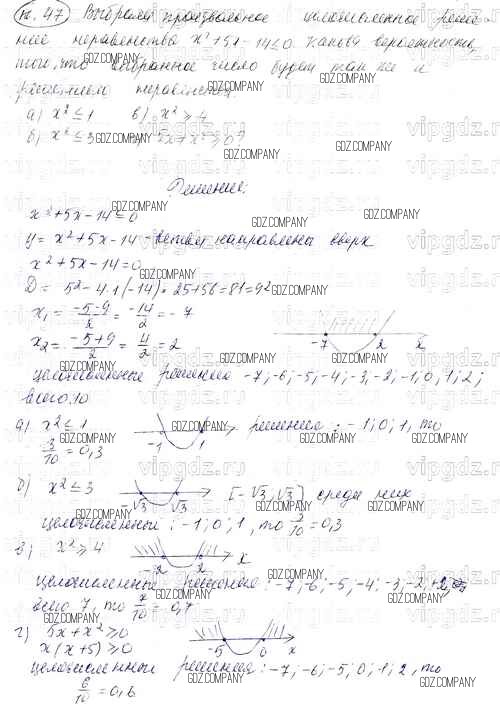 №. 47) Выбрали произвольное целочисленное реше-
ние неравенства x²+5x-14≤0. Какова вероятность
того, что выбранное число будет так же и
решением неравенства
а) x²≤1 в) x²≥4
б) x²≤3 5x+x²≥0?
Решение:
x²+5x-14≤0
y = x²+5x-14 - ветви направлены вверх
x²+5x-14=0
D = 5²-4·1·(-14) = 25+56=81=9²
x₁ = (-5-9)/2 = -14/2 = -7
x₂ = (-5+9)/2 = 4/2 = 2
-7 2 x
целочисленные решения -7;-6;-5;-4;-3;-2;-1;0,1;2;
всего 10
а) x²≤1 -1 1 решения: -1;0;1, то
3/10 = 0,3
б) x²≤3 √3 √3 [-√3, √3] среди них
целочисленный: -1;0;1, то 3/10 = 0,3
в) x²≥4 -2 2 x
целочисленные решения: -7,-6;-5,-4;-3,-2,+2
всего 7, то 7/10 = 0,7
г) 5x+x²≥0
x(x+5)≥0 -5 0 x
целочисленный решения: -7,-6;-5;0;1;2, то
6/10 = 0,6
GDZ.COMPANY
vipgdz.ru